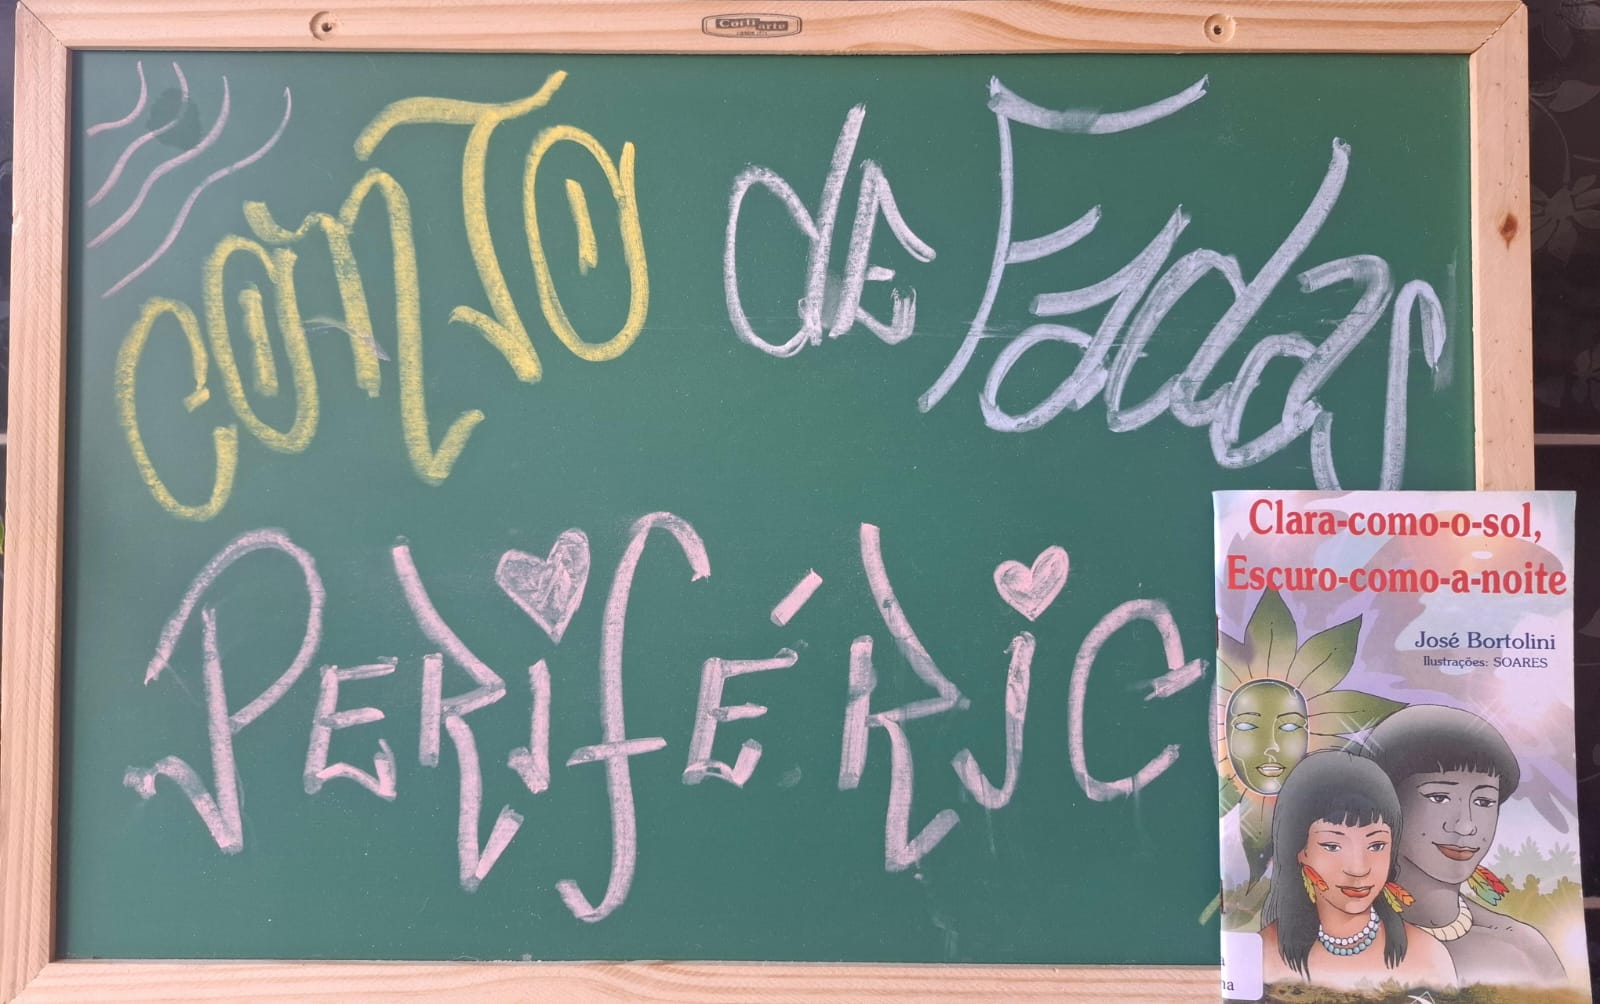 Corti arte
Conto de Fadas
PERIFÉRIC
Clara-como-o-sol,
Escuro-como-a-noite
José Bortolini
Ilustrações: SOARES